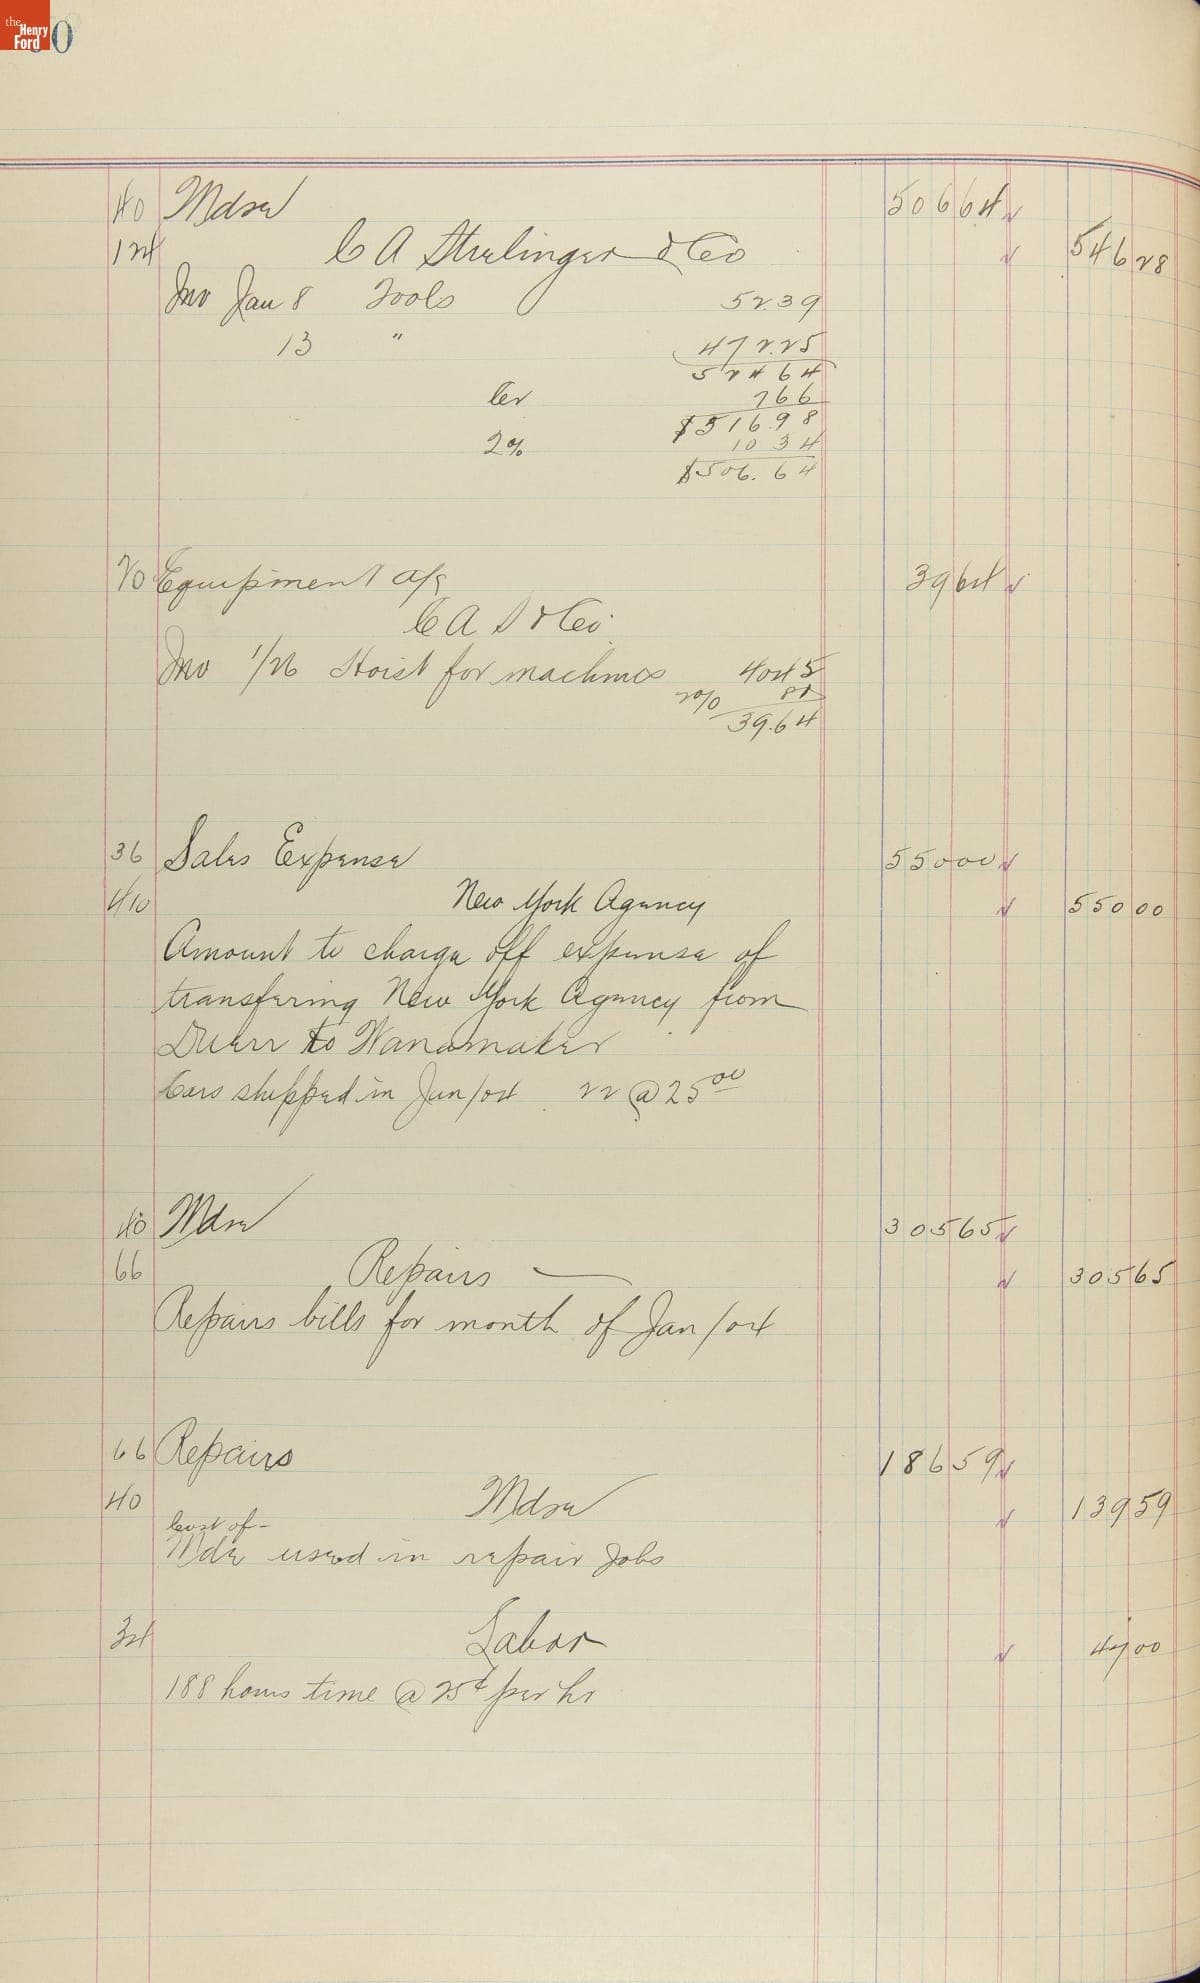 the Henry Ford
0
40 Mdse 506 64
124 C A Strelinger & Co 546 28
Inv Jan 8 Tools 52.39
13 " 472.25
524 64
Cr 7 66
$516.98
2% 10 34
$506.64
70 Equipment a/c 39 64
C A S & Co
Inv 1/26 Hoist for machines 40 45
2% 81
39.64
36 Sales Expense 550 00
410 New York Agency 550 00
Amount to charge off expense of
transfering New York Agency from
Duerr to Wanamaker
Cars shipped in Jan/04 22 @ 25 00
40 Mdse 305 65
66 Repairs 305 65
Repairs bills for month of Jan/04
66 Repairs 186 59
40 Mdse 139 59
Cost of -
Mdse used in repair Jobs
34 Labor 47 00
188 hours time @ 25¢ per hr